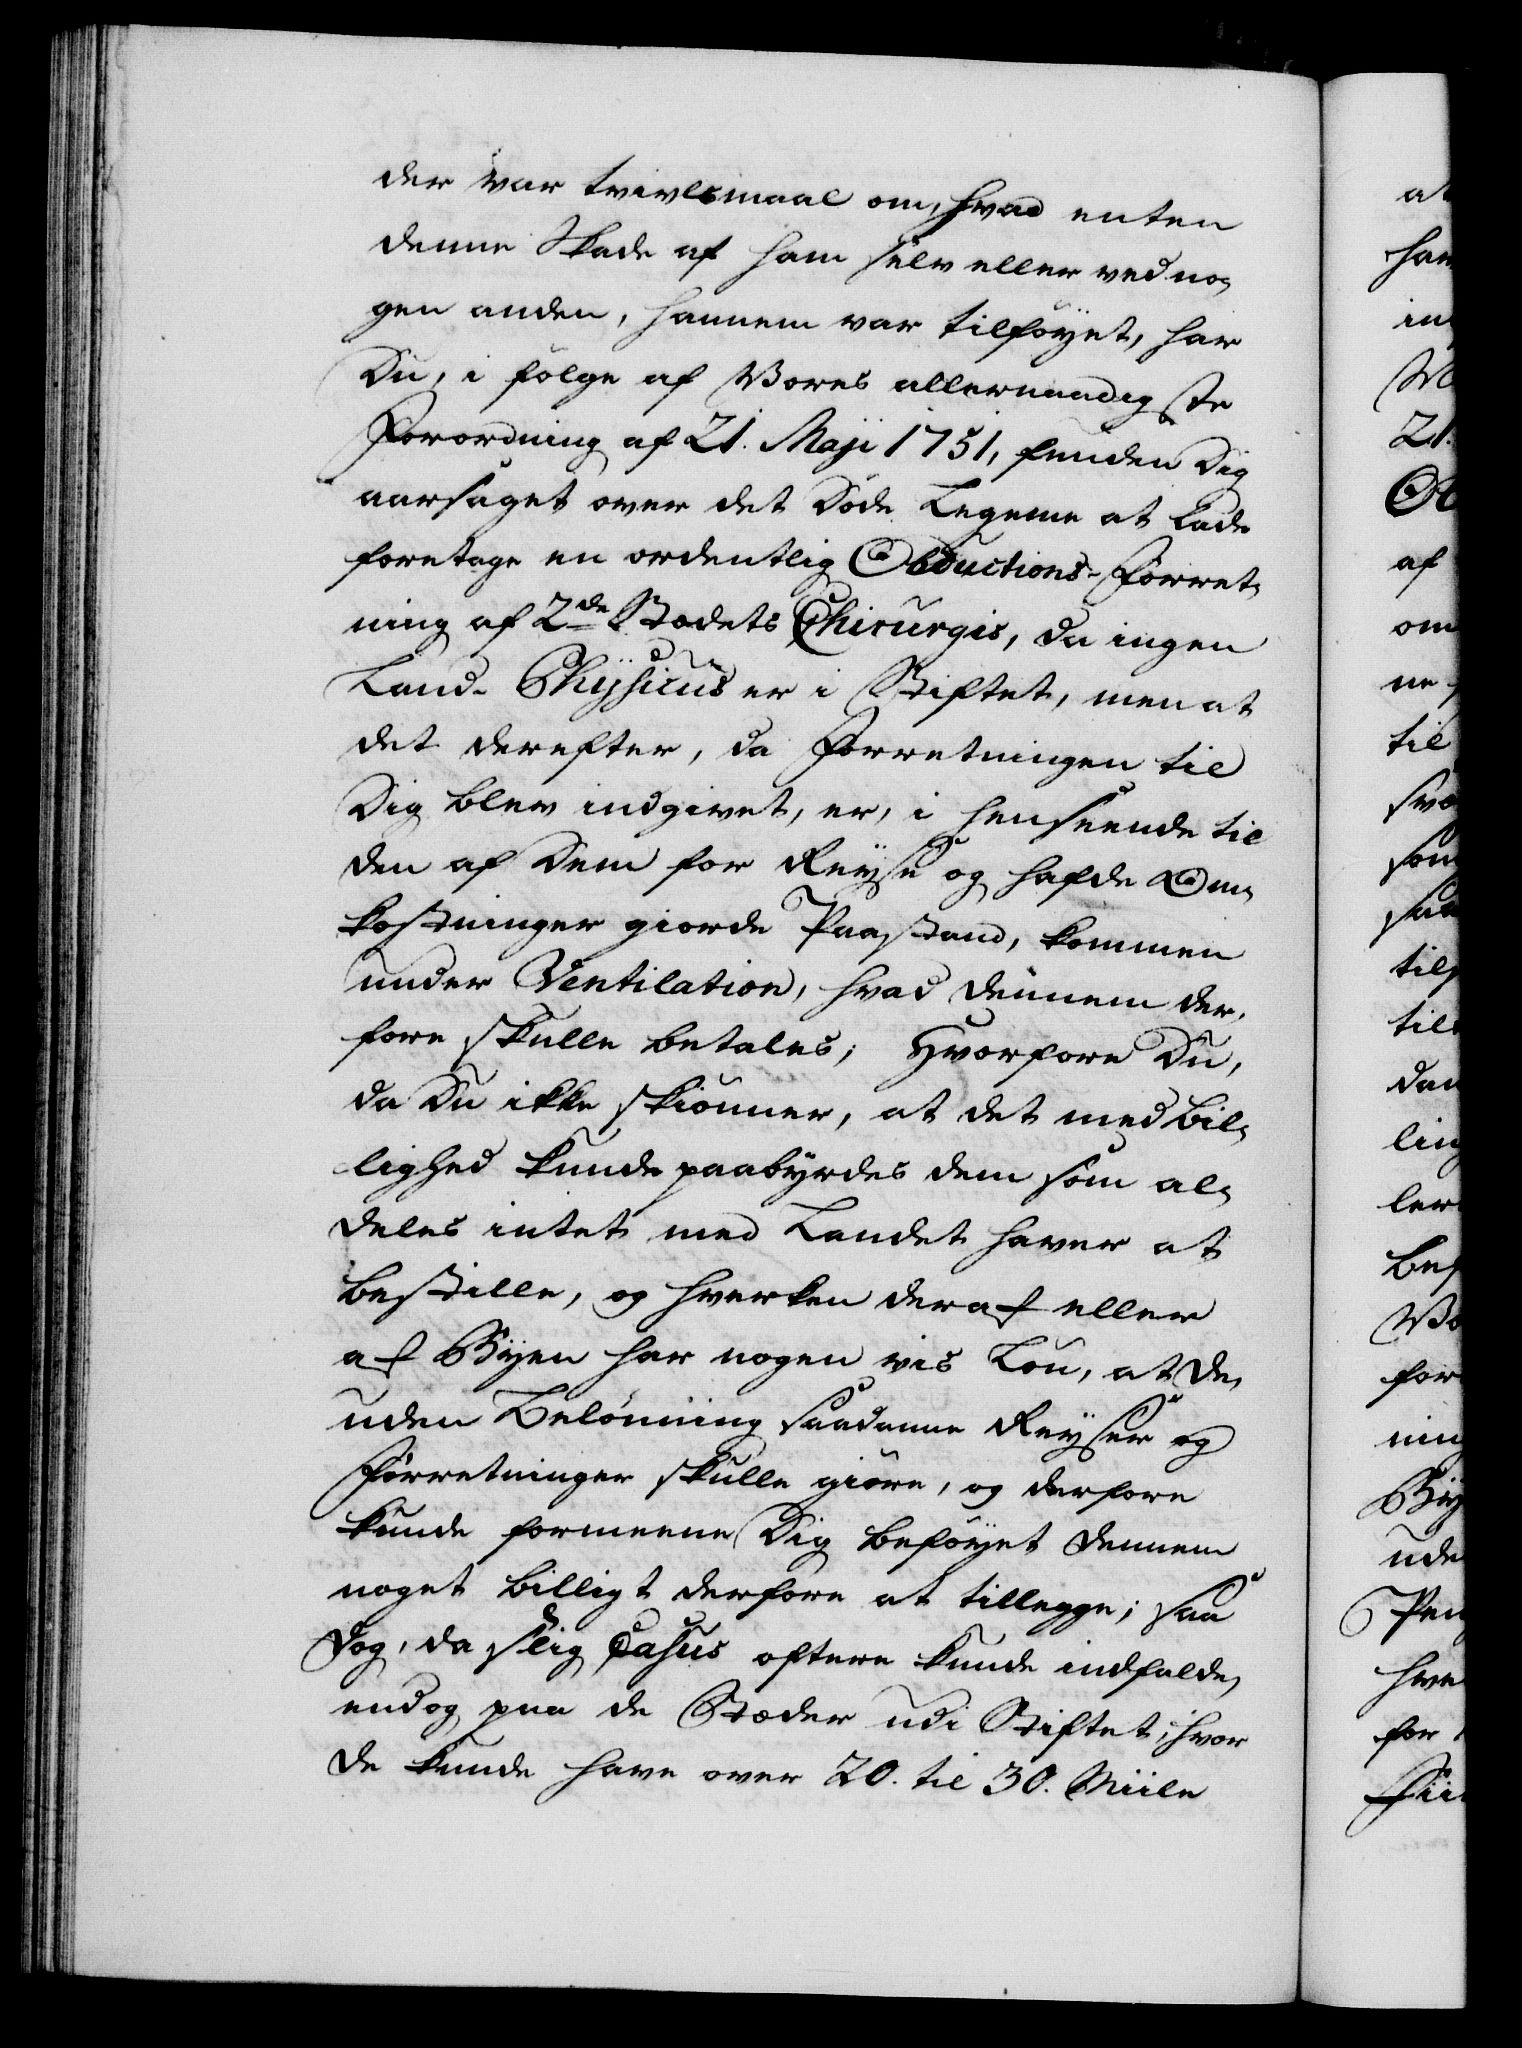 der var tvivlsmaal om, hvad enten
denne Skade af ham selv eller ved no-
gen anden, hannem var tilføyet, har
Du, i følge af Vores allernaadigste
Forordning af 21. Maji 1751, funden Dig
aarsaget over det Døde Legeme at lade
foretage en ordentlig Obductions-Forret-
ning af 2de Stædets Chirurgis, da ingen
Land-Physicus er i Stiftet, men at
det derefter, da Forretningen til
Dig blev indgivet, er, i henseende til
den af Dem for Reyse og hafde Om-
kostninger giorde Paastand, kommen
under Ventilation, hvad dennem der-
fore skulle betales; Hvorfore Du,
da Du ikke skiønner, at det med bil-
lighed kunde paabyrdes dem som al-
deles intet med Landet haver at
bestille, og hverken deraf eller
af Byen har nogen vis Løn, at de,
uden Belønning saadanne Reyser og
Forretninger skulle giøre, og derfore
kunde formeene Dig beføyet dennem
noget billigt derfore at tillegge; saa
dog, da slig Casus oftere kunde indfalde,
endog paa de Stæder udi Stiftet, hvor
de kunde have over 20. til 30. Miile
at
har
ind
21.
af
om
ne
til
svæ
som
saa
tilf
till
dan
ling
ler
bes
Vo
for
ning
By
ude
Pen
hve
for